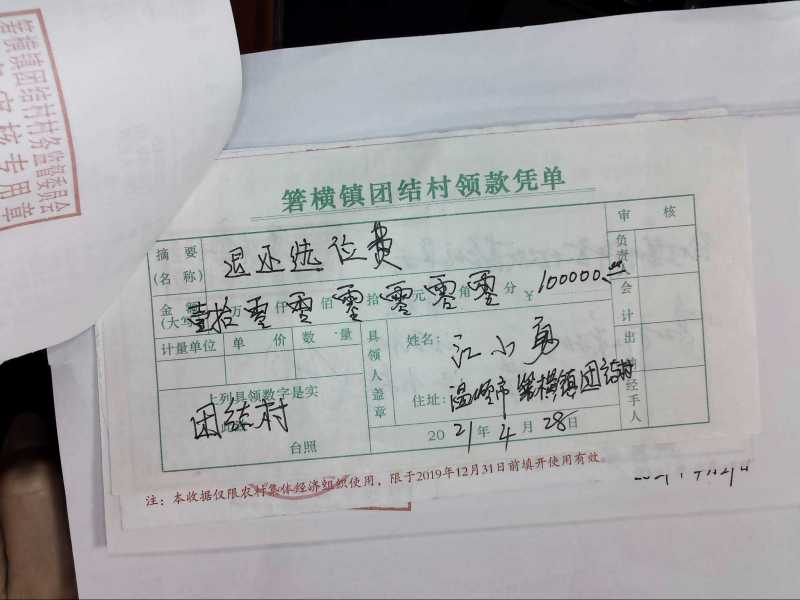 箬横镇团结村村务监督委员会
审核专用章
箬横镇团结村领款凭单
摘要(名称) 退还统位费
审核
金额(大写) 壹拾零万零仟零佰零拾零元零角零分 ¥100000.00
计量单位 单价 数量
具领人盖章
姓名: 江小勇
住址: 温岭市箬横镇团结村
负责
会计
出纳
经手人
上列具领数字是实
团结村
台照
2021年4月28日
注:本收据仅限农村集体经济组织使用,限于2019年12月31日前填开使用有效。